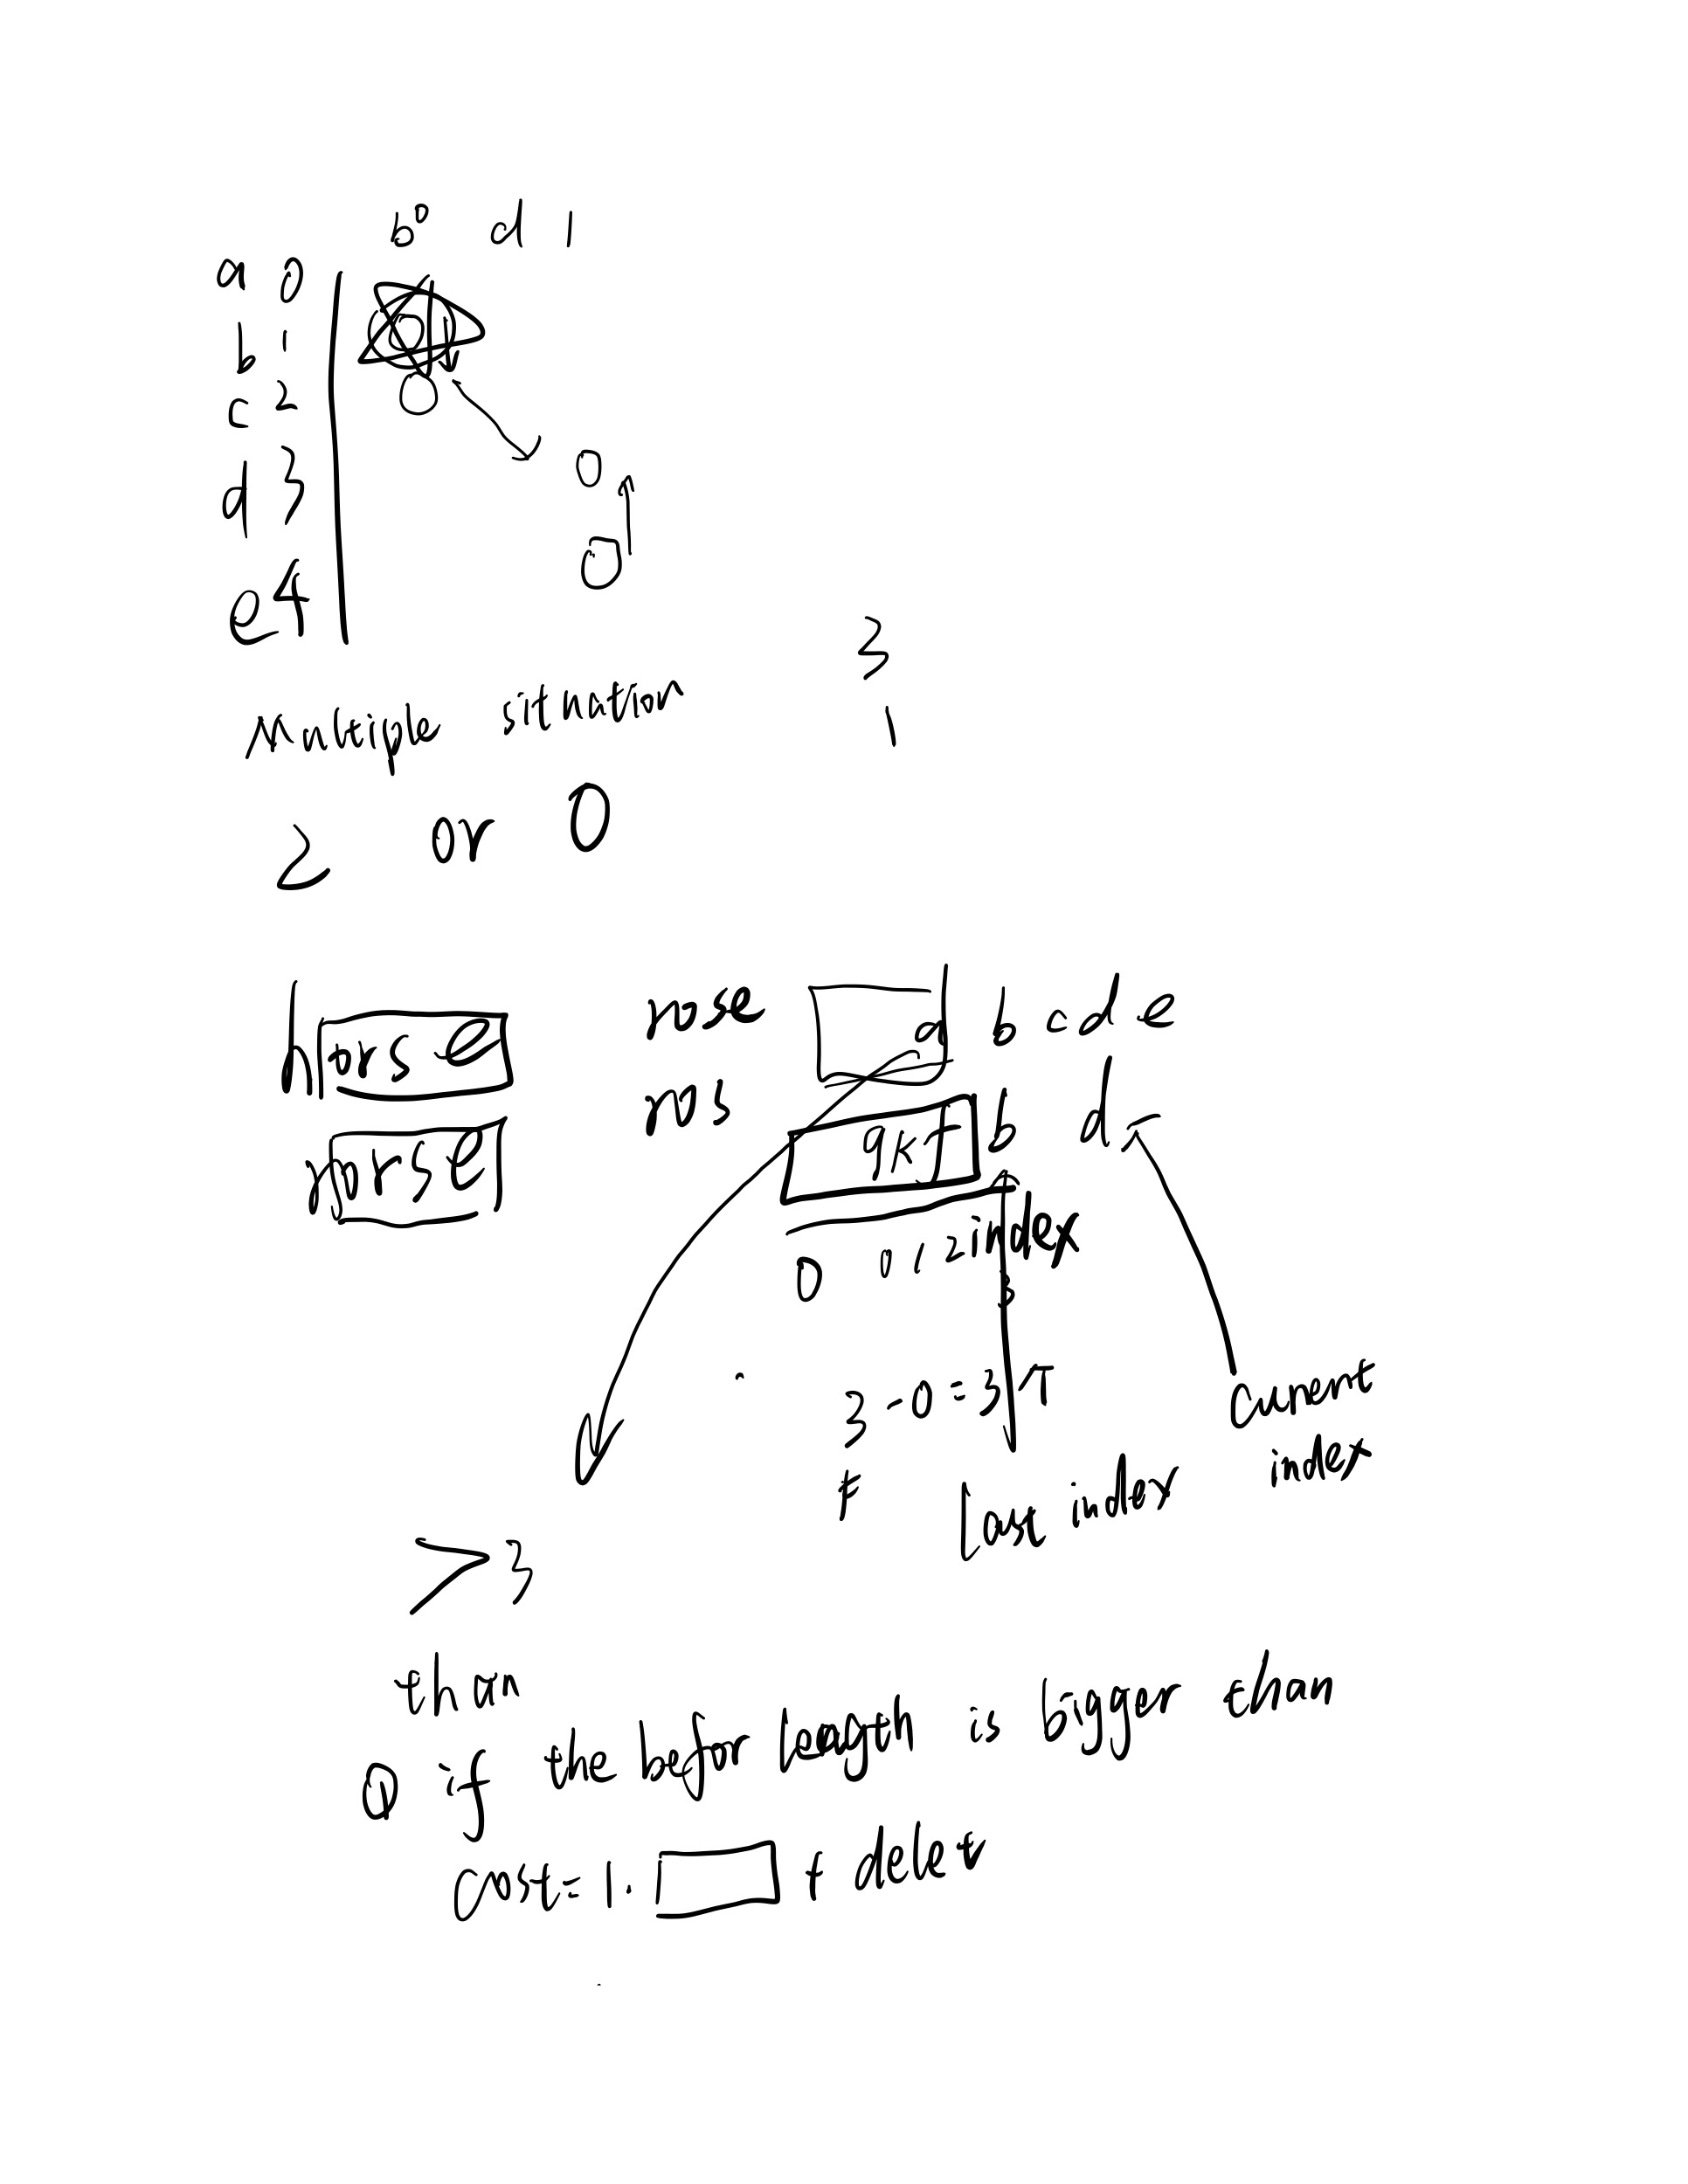 b 0 d 1
a 0
b 1
c 2
d 3
e 4
0
0
0
Multiple situation
3
1
2 or 0
horse
rose
a b c d e
ros
b d
0 0 1 2 index
3
3 - 0 = 3
Last index
Current index
> 3
than
if the befor length is bigger than
cost = 1 · + delet